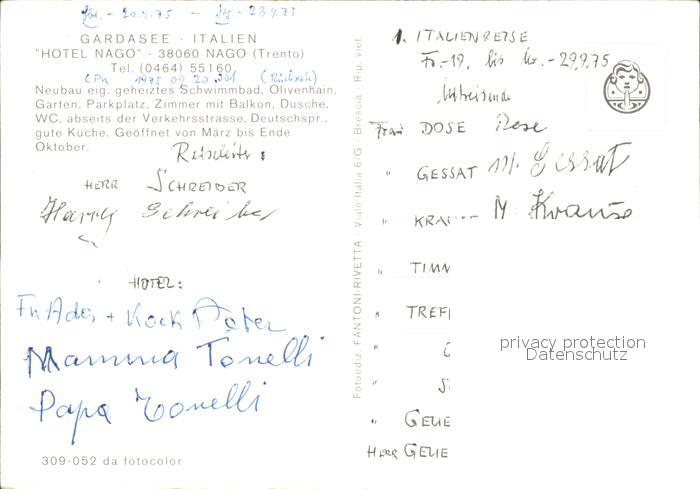 20.9.75 - 28.9.75
GARDASEE · ITALIEN
"HOTEL NAGO" - 38060 NAGO (Trento)
Tel. (0464) 55160
1975 09 20.
Neubau eig. geheiztes Schwimmbad, Olivenhain,
Garten, Parkplatz, Zimmer mit Balkon, Dusche,
WC, abseits der Verkehrsstrasse, Deutschspr.,
gute Küche. Geöffnet von März bis Ende
Oktober.
Reiseleiter:
HERR SCHREIBER
Schreiber
HOTEL:
Fr. Ader + Koch Peter
Mamma Tonelli
Papa Tonelli
309-052 da fotocolor
Fotoediz. FANTONI-RIVETTA - Viale Italia 6/G - Brescia - Rip. viet.
1. ITALIENREISE
Fr.-19. bis Mo.-29.9.75
Mitreisende
Frau DOSE Dose
" GESSAT M. Gessat
" KRAU M. Krause
" TIMM
" TREFF
"
"
" GEHE
HERR GEHE
privacy protection
Datenschutz